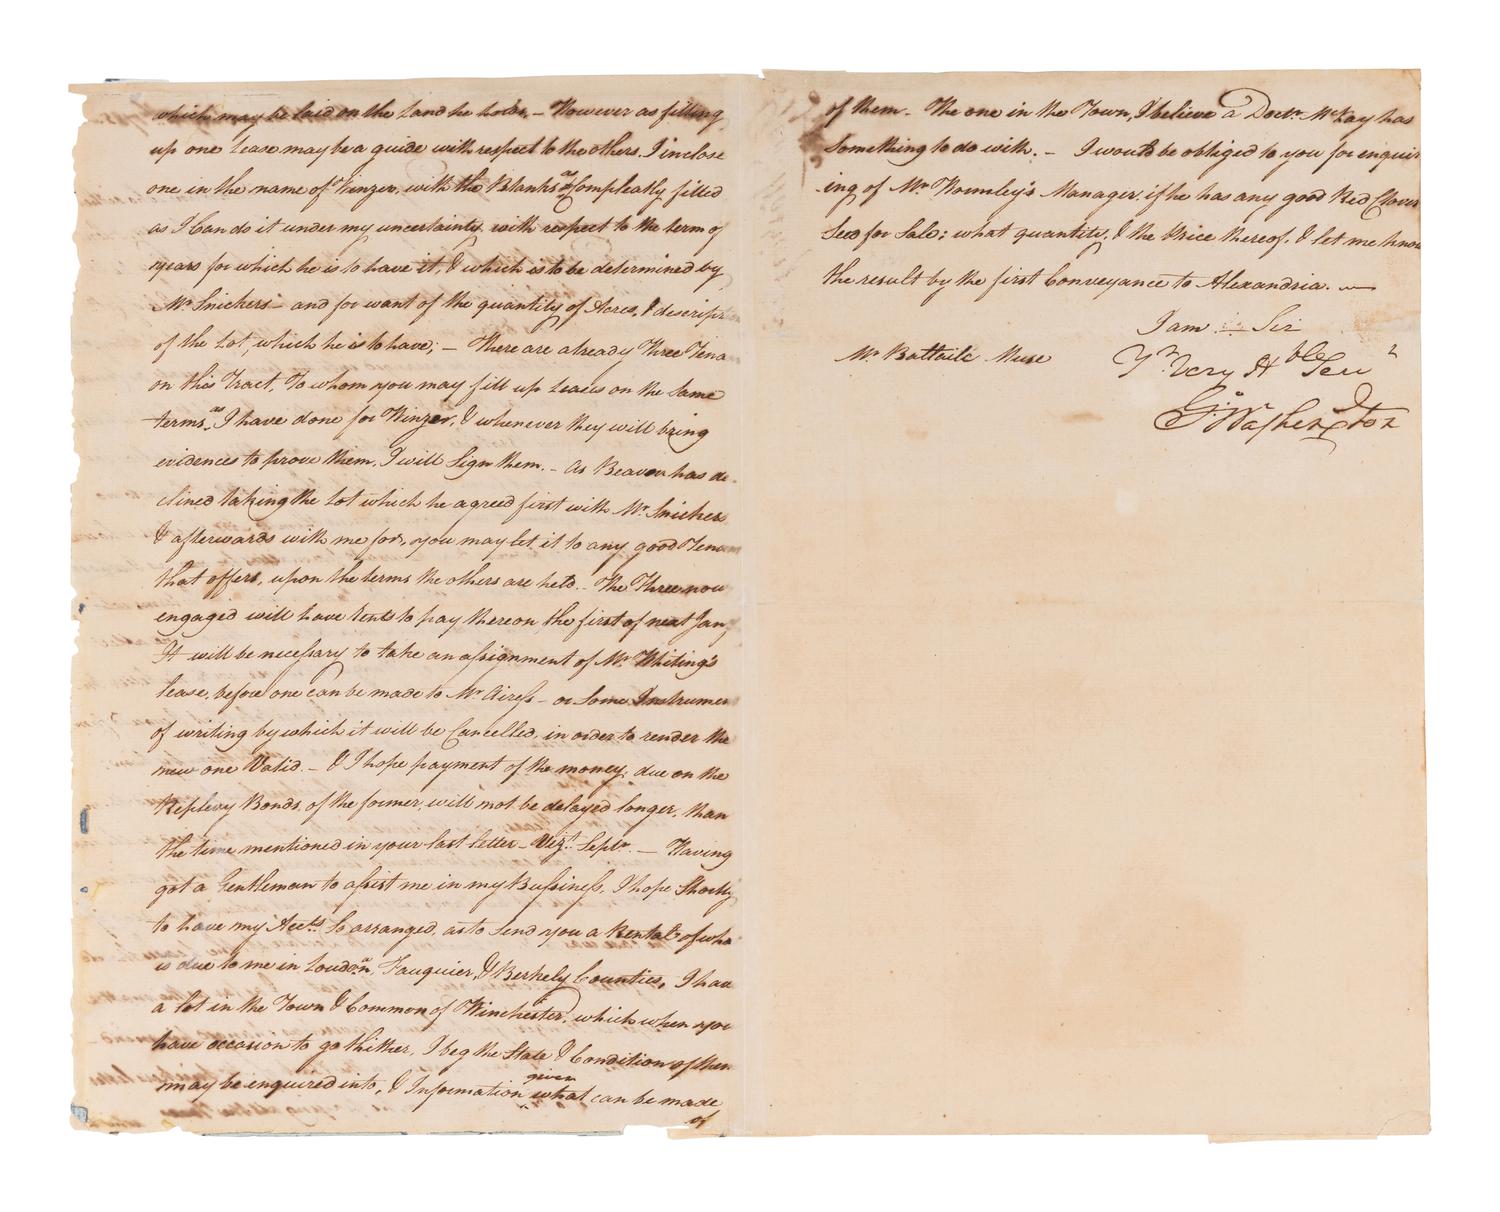 which may be laid on the Land he holds. – However as filling
up one Lease may be a guide with respect to the others, I inclose
one in the name of Winzer, with the Blanks as Compleatly filled
as I Can do it under my uncertainty, with respect to the term of
years for which he is to have it, & which is to be determined by
Mr Snickers – and for want of the quantity of Acres, & descrip
of the Lot, which he is to have; – There are already Three Tena
on this Tract, To whom you may fill up Leases on the Same
terms as I have done for Winzer, & whenever they will bring
evidences to prove them, I will Sign them. – As Beavou has de-
clined taking the Lot which he agreed first with Mr Snickers
& afterwards with me for, you may let it to any good Tenan
that offers, upon the terms the others are held. – The Three now
engaged will have rents to pay thereon the first of next Jany
It will be necessary to take an assignment of Mr Whiting's
Lease, before one can be made to Mr Airess – or Some Instrumen
of writing by which it will be Cancelled, in order to render the
new one Valid. – & I hope payment of the money, due on the
Replevy Bonds, of the former, will not be delayed longer, than
the time mentioned in your last Letter – Vizt Septr. – Having
got a Gentleman to assist me in my Bussiness, I hope Shortly
to have my Accts So arranged, as to Send you a Rental of wha
is due to me in Loudon, Fauquier, & Berkely Counties, I hav
a Lot in the Town & Common of Winchester, which when you
have occasion to go thither, I beg the State & Condition of them
may be enquired into, & Information given what can be made
of
of them. – The one in the Town, I believe a Doctr McKay has
Something to do with. – I would be obliged to you for enquir
ing of Mr Wormley's Manager, if he has any good Red Clover
Seed for Sale; what quantity, & the Price thereof, & let me know
the result by the first Conveyance to Alexandria. –
I am – Sir
Mr Battaile Muse
Yr Very Hble Servt
Go: Washington